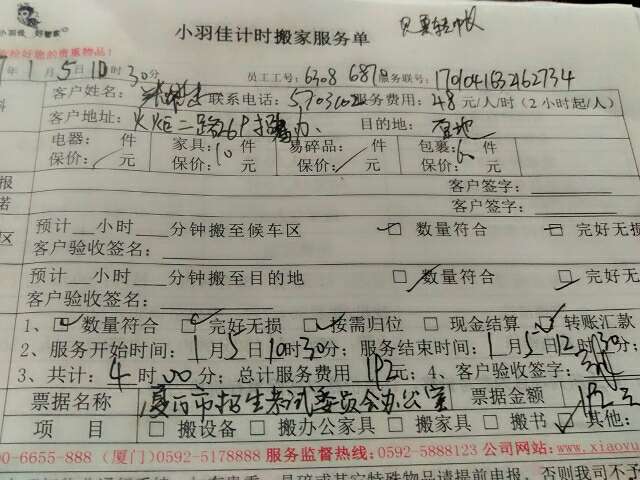 小羽佳 好管家
小羽佳计时搬家服务单
保管好您的贵重物品!
1月5日10时30分 员工工号: 6308 687 服务联号: 1701041632162734
客户姓名: 联系电话: 服务费用: 48元/人/时(2小时起/人)
客户地址: 火炬二路26号招办 目的地:
电器: 件 家具: 10件 易碎品: 件 包裹: 60件
保价: 元 保价: 元 保价: 元 保价: 元
客户签字:
客户签字:
预计 小时 分钟搬至候车区 数量符合 完好无损
客户验收签名:
预计 小时 分钟搬至目的地 数量符合 完好无
客户验收签名:
1、 数量符合 完好无损 按需归位 现金结算 转账汇款
2、服务开始时间: 1月5日10时30分; 服务结束时间: 1月5日12时30分;
3、共计: 4时00分; 总计服务费用 192元; 4、客户验收签字:
票据名称 厦门市招生考试委员会办公室 票据金额 192元
项 目 搬设备 搬办公家具 搬家具 搬书 其他:
0-6655-888 (厦门)0592-5178888 服务监督热线:0592-5888123 公司网站:www.xiaoyu